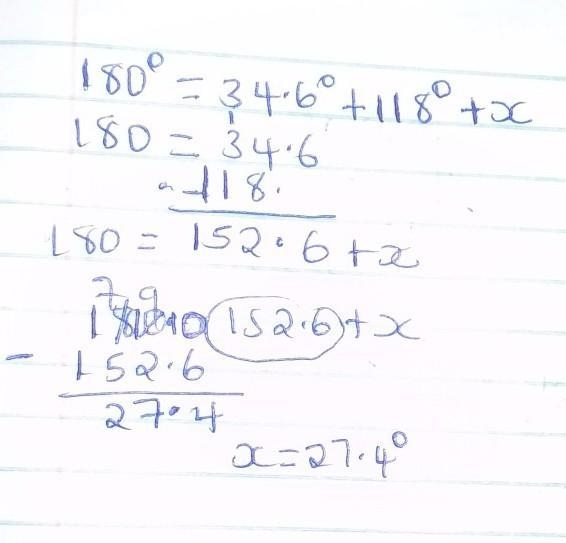 180° = 34.6° + 118° + x
180 = 34.6
118.
180 = 152.6 + x
152.6 + x
- 152.6
27.4
x = 27.4°